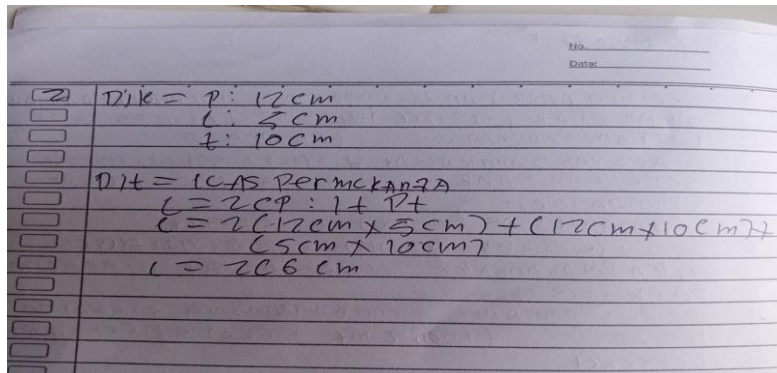 No.
Date:
2) Dik = P : 12 cm
l : 5 cm
t : 10 cm
Dit = lUAS PermukAnYA
L = 2(P : l + Pt
L = 2(12cm x 5cm) + (12cm x 10cm) +
(5cm x 10cm)
L = 2(6 cm